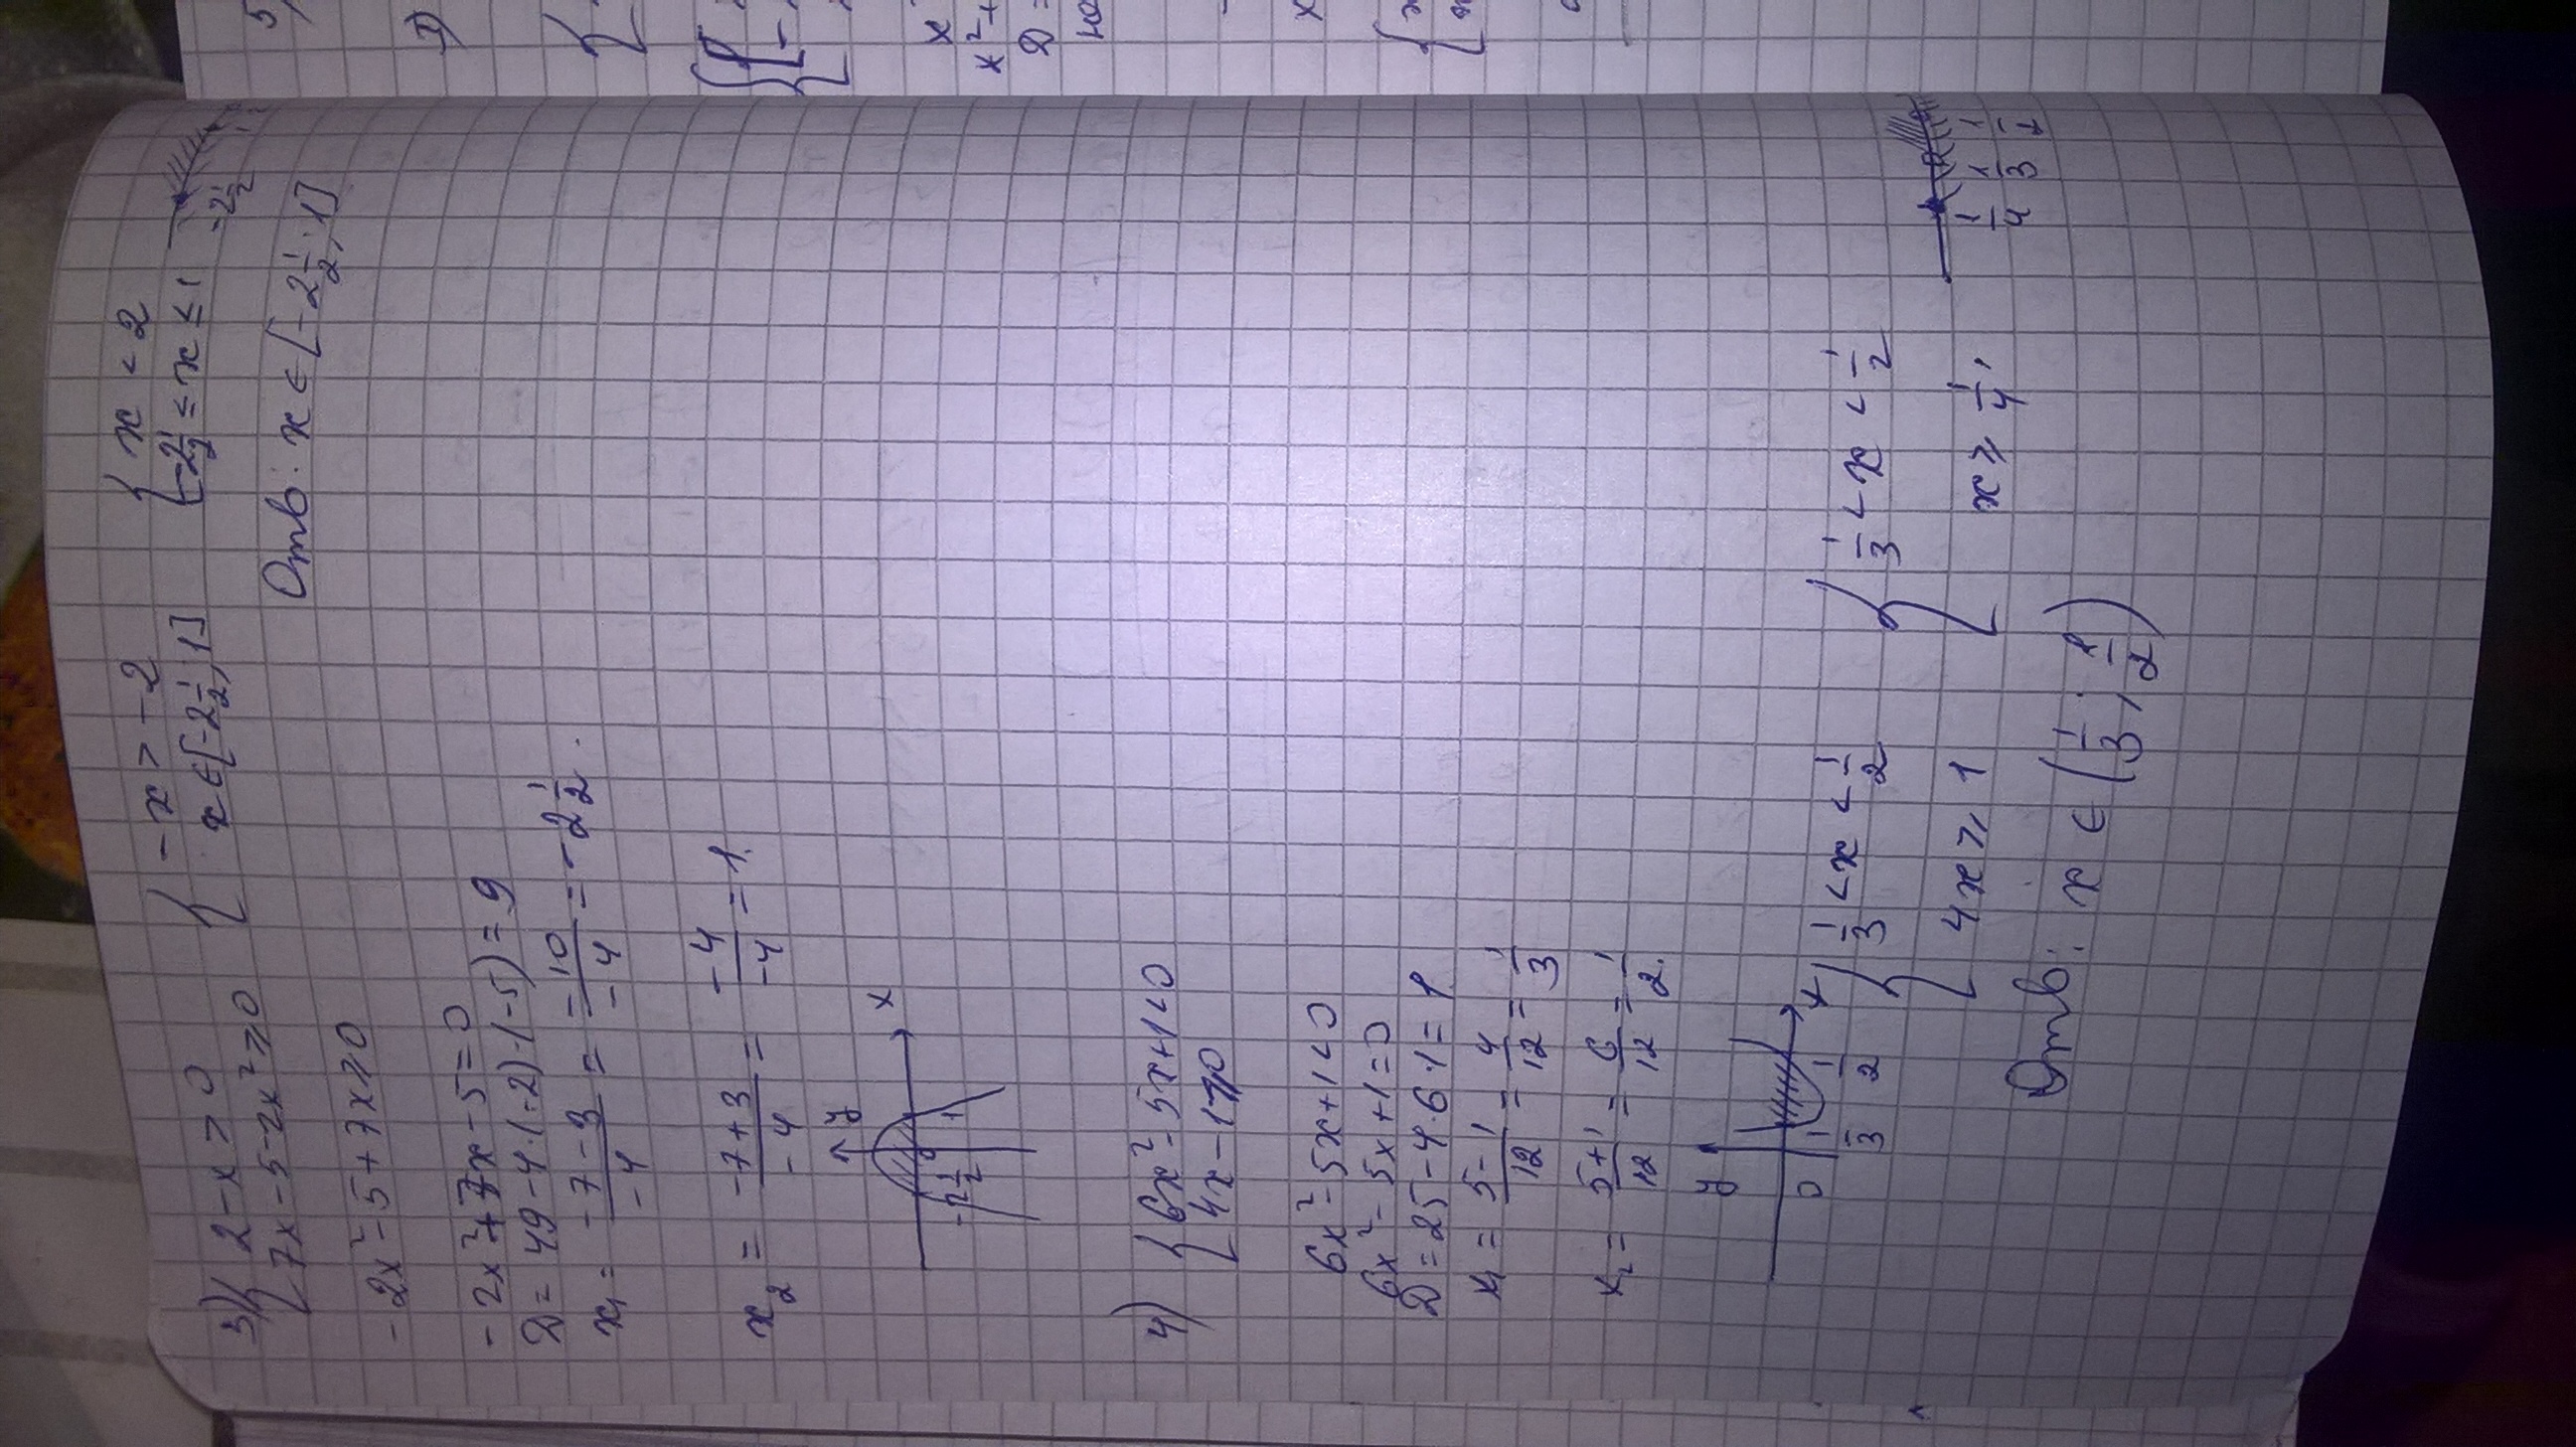 3) { 2 - x > 0
7x - 5 - 2x² ⩾ 0
{ -x > -2
x ∈ [-2 1/2; 1]
{ x < 2
-2 1/2 ≤ x ≤ 1
-2 1/2
Отв: x ∈ [-2 1/2; 1]
-2x² - 5 + 7x ⩾ 0
-2x² + 7x - 5 = 0
D = 49 - 4·(-2)·(-5) = 9
x₁ = (-7 - 3)/(-4) = = (-10)/(-4) = -2 1/2.
x₂ = (-7 + 3)/(-4) = (-4)/(-4) = 1.
y
x
-2 1/2 0 1
4) { 6x² - 5x + 1 < 0
4x - 1 ⩾ 0
6x² - 5x + 1 < 0
6x² - 5x + 1 = 0
D = 25 - 4·6·1 = 1
x₁ = (5 - 1)/12 = 4/12 = 1/3
x₂ = (5 + 1)/12 = 6/12 = 1/2.
y
0 1/3 1/2 x
{ 1/3 < x < 1/2
4x ⩾ 1
{ 1/3 < x < 1/2
x ⩾ 1/4,
1/4 1/3 1/2
Отв: x ∈ (1/3; 1/2)
5)
1)
{
x² +
D =
x
{